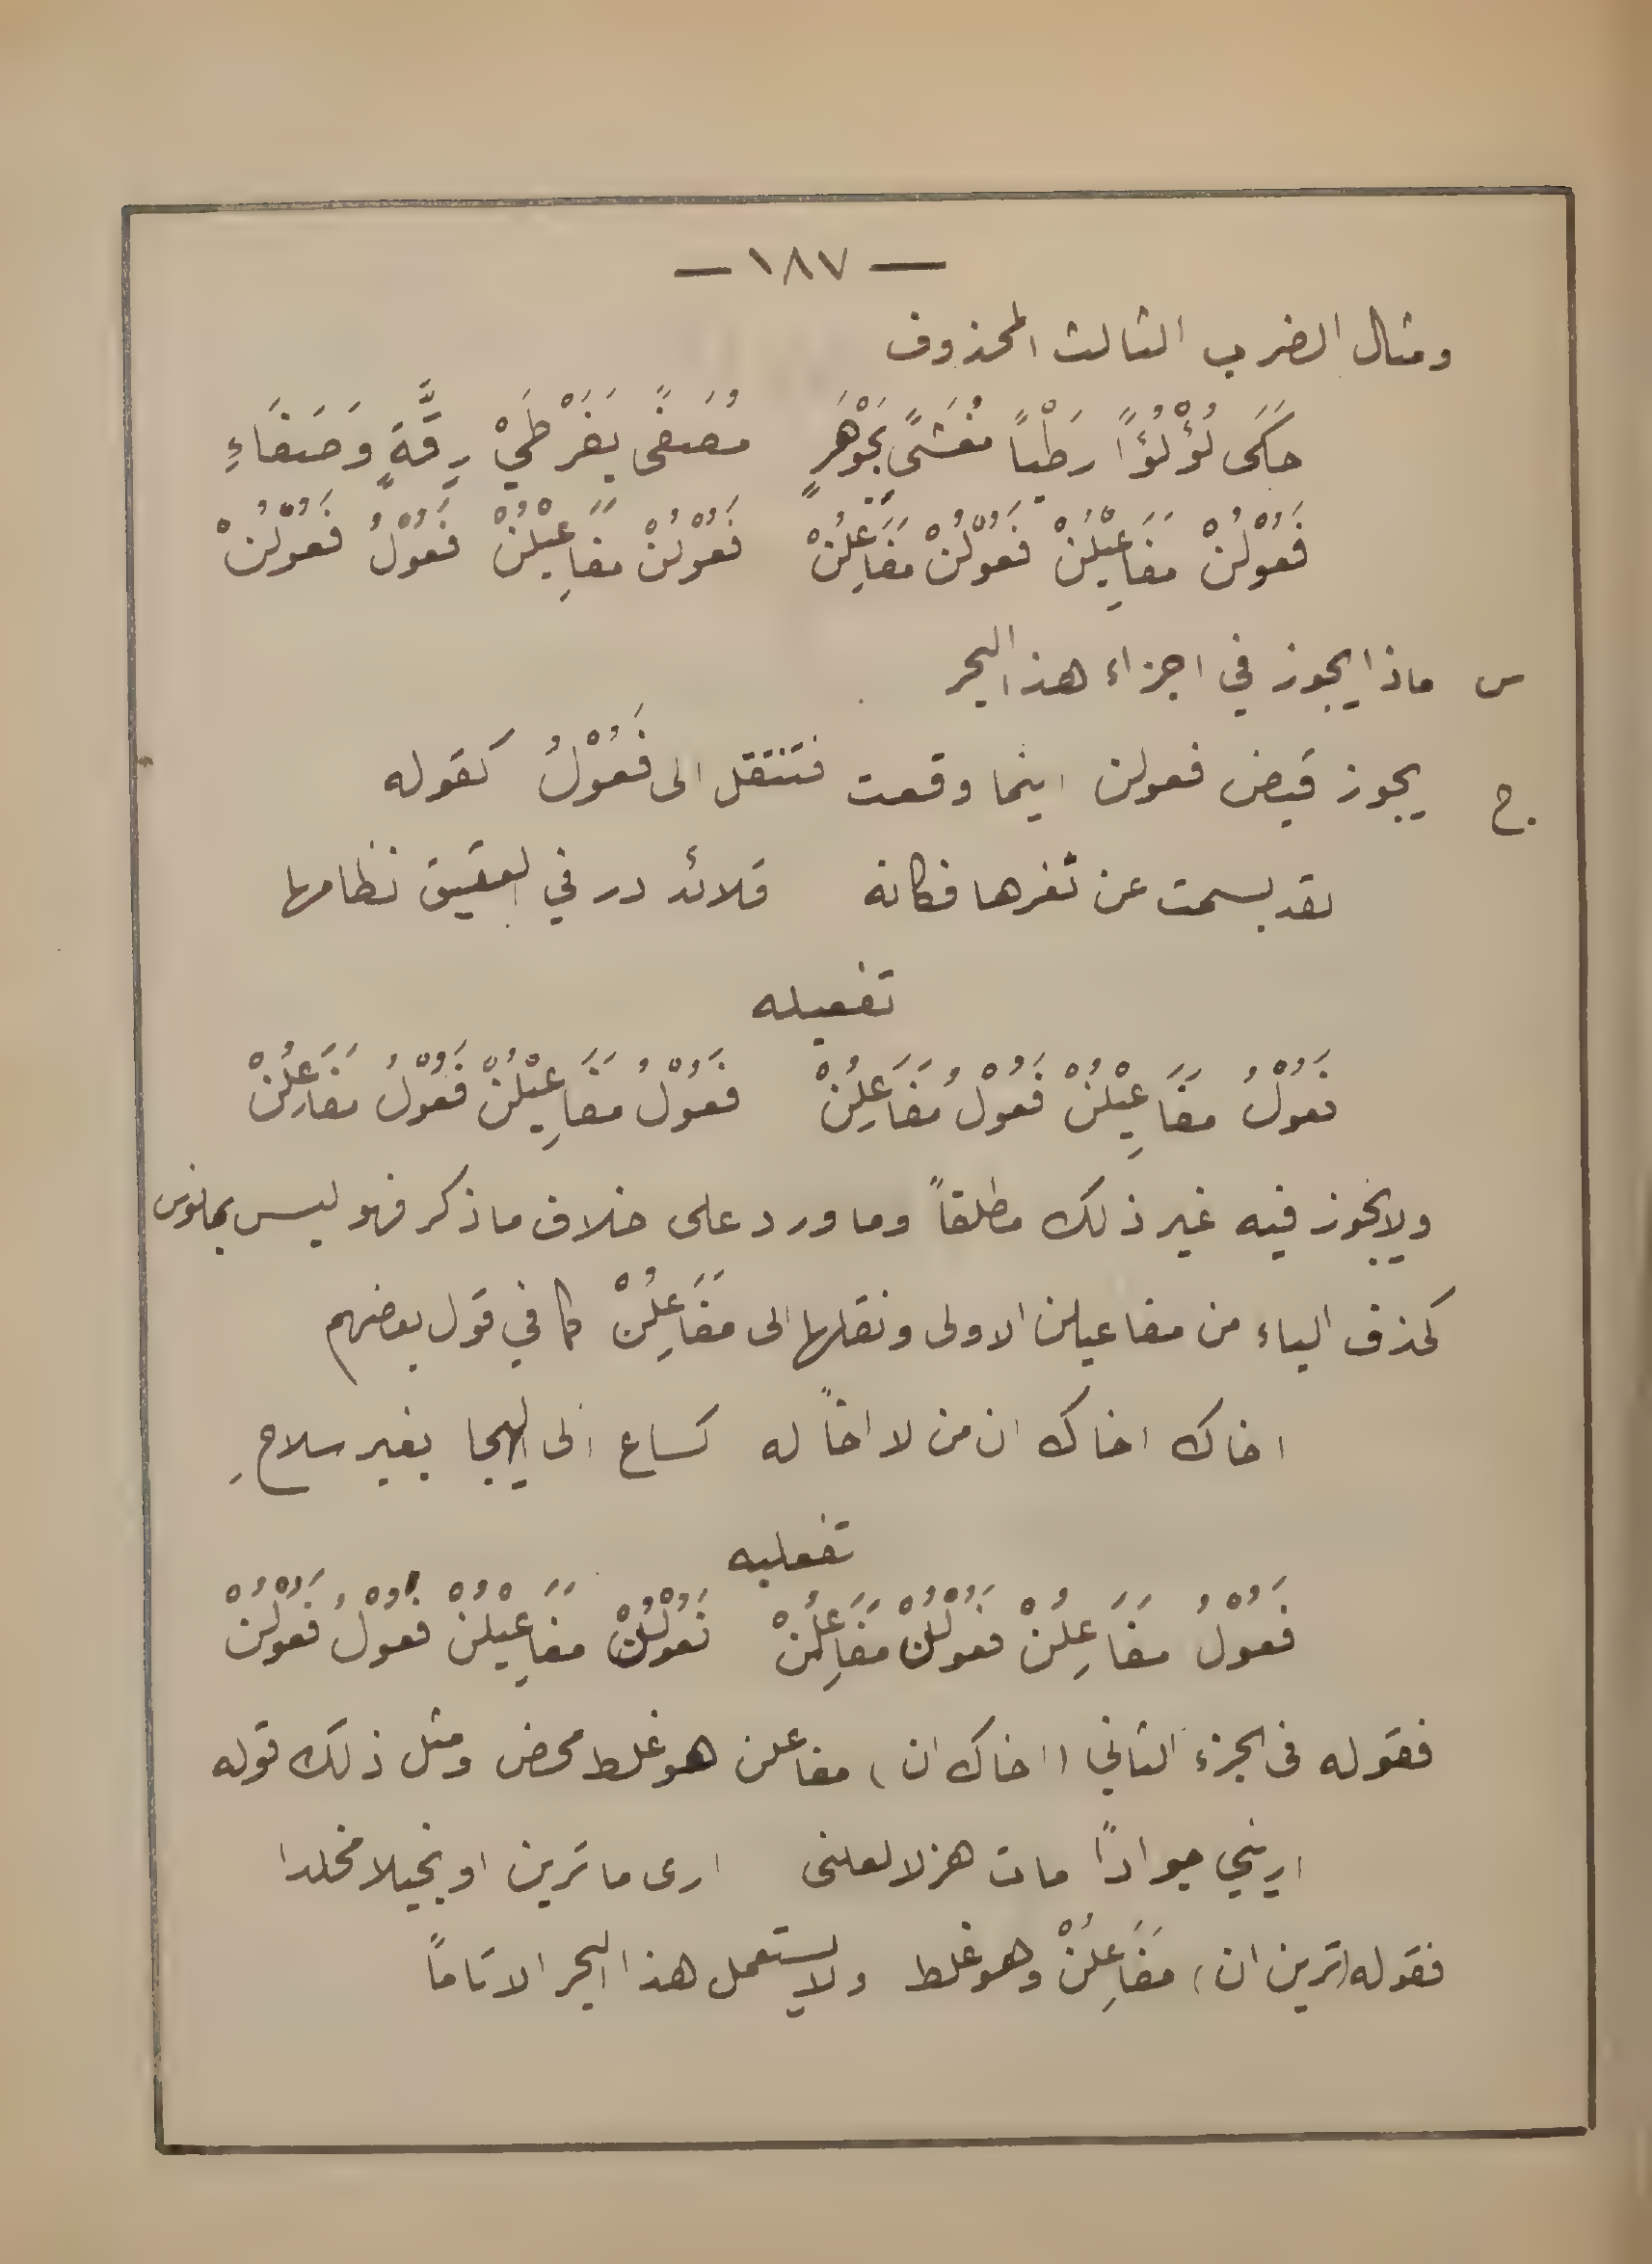 — ١٨٧ —
ومثال الضرب الثالث المحذوف
حَكَى لُؤْلُؤًا رَطْباً مُغَشَىً بِجَوْهَرٍ مُصَفىً بِفَرْطَيْ رِقَّةٍ وَصَفَاءِ
فَعُوْلُنْ مَفَاعِيْلُنْ فَعُوْلُنْ مَفَاعِلُنْ فَعُوْلُنْ مَفَاعِيْلُنْ فَعُوْلُ فَعُوْلُنْ
س ماذا يجوز في اجزاء هذا البحر
ج يجوز قبض فعولن اينما وقعت فتنتقل الى فَعُوْلُ كقوله
لقد بسمت عن ثغرها فكانه قلائد در في العقيق نظامها
تفعيله
فَعُوْلُ مَفَاعِيْلُنْ فَعُوْلُ مَفَاعِلُنْ فَعُوْلُ مَفَاعِيْلُنْ فَعُوْلُ مَفَاعِلُنْ
ولا يجوز فيه غير ذلك مطلقاً وما ورد على خلاف ما ذكر فهو ليس بمانوس
كحذف الياء من مفاعيلن الاولى ونقلها الى مَفَاعِلُنْ كما في قول بعضهم
اخاك اخاك ان من لا اخاً له كساع الى الهيجا بغير سلاحِ
تفعليه
فَعُوْلُ مَفَاعِلُنْ فَعُوْلُنْ مَفَاعِلُنْ فَعُوْلُنْ مَفَاعِيْلُنْ فَعُوْلُ فَعُوْلُنْ
فقوله فى الجزء الثاني (اخاك ان) مفاعلن هو غلط محض ومثل ذلك قوله
اريني جوادًا مات هزلا لعلنى ارى ما ترين او بخيلا مخلدا
فقوله (ترين ان) مَفَاعِلُنْ وهو غلط ولا يستعمل هذا البحر الا تاماً